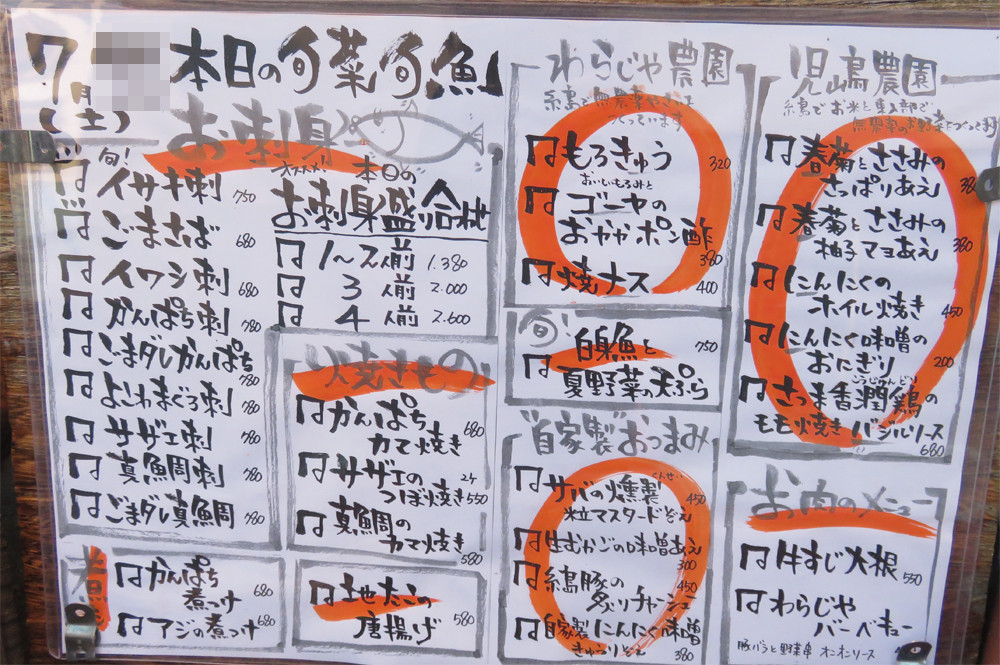 7月
(土)
本日の旬菜旬魚
お刺身
旬!
イサキ刺 750
ごまさば 680
イワシ刺 680
かんぱち刺 780
ごまダレかんぱち 780
よこわまぐろ刺 780
サザエ刺 780
真魚鯛刺 780
ごまダレ真魚鯛 780
オススメ! 本日の
お刺身盛り合せ
1〜2人前 1.380
3人前 2.000
4人前 2.600
焼きもの
かんぱち
カマ焼き 680
サザエの 2ケ
つぼ焼き 550
真鯛の
カマ焼き 580
煮
かんぱち
煮つけ 680
アジの煮つけ 680
地たこの
唐揚げ 580
わらじや農園
糸島で無農薬で
つくっています
もろきゅう 320
おいしいもろみと
ゴーヤの
おかかポン酢 380
焼ナス 400
旬!
白身魚と 750
夏野菜の天ぷら
自家製おつまみ
くんせい
サバの燻製 450
粒マスタードぞえ
生むかごの味噌あえ 300
糸島豚の 450
炙りチャーシュー
自家製にんにく味噌
きゅうりぞえ 380
児島農園
糸島でお米と
無農薬のお野菜をつくってます
春菊とささみの
さっぱりあえ 380
春菊とささみの
柚子マヨあえ 380
にんにくの
ホイル焼き 450
にんにく味噌の
おにぎり 200
さつま香潤鶏の
モモ焼き バジルソース 680
お肉のメニュー
牛すじ大根 550
わらじや
バーベキュー
豚バラと野菜串 オニオンソース